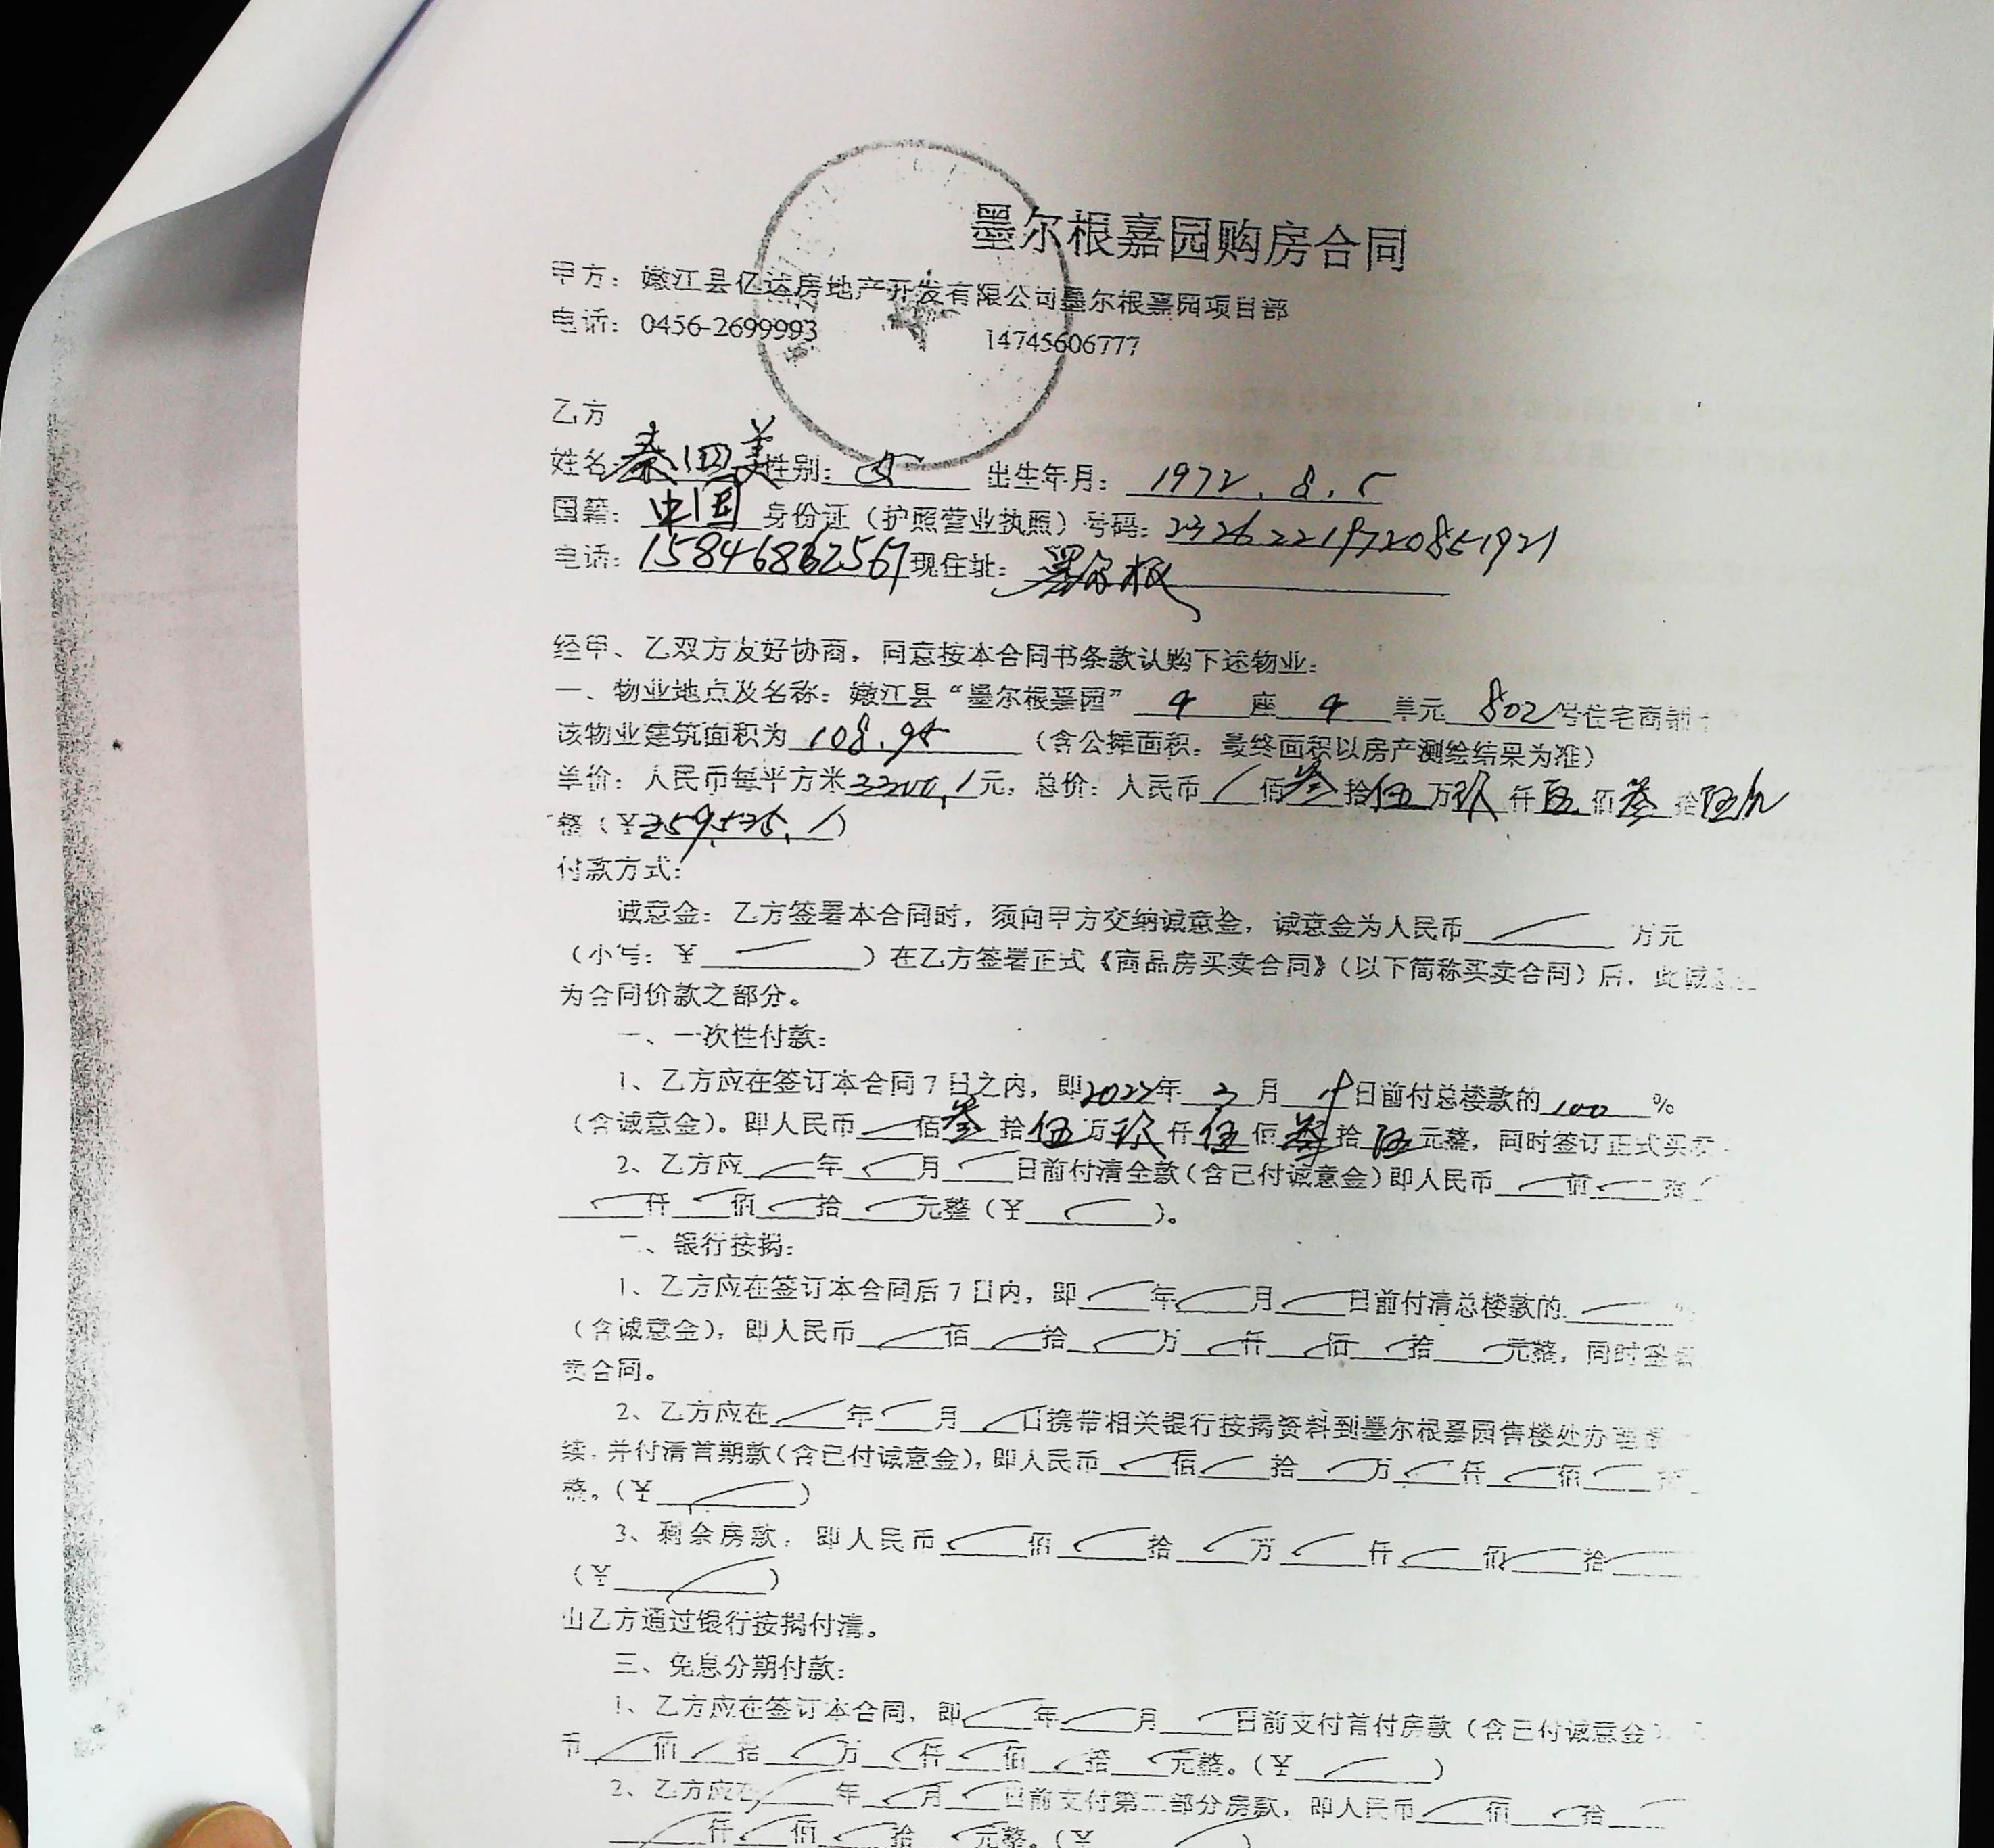 墨尔根嘉园购房合同
甲方：嫩江县亿达房地产开发有限公司墨尔根嘉园项目部
电话：0456-2699993 14745606777
乙方
姓名：秦四美 性别：女 出生年月：1972.8.5
国籍：中国 身份证（护照营业执照）号码：
电话：15846862567 现住址：墨尔根
经甲、乙双方友好协商，同意按本合同书条款认购下述物业：
一、物业地点及名称：嫩江县“墨尔根嘉园” 4 座 4 单元 802 号住宅商铺
该物业建筑面积为 108.95 （含公摊面积，最终面积以房产测绘结果为准）
单价：人民币每平方米 元，总价：人民币 / 佰 叁 拾 伍 万 玖 仟 伍 佰 叁 拾 伍元
整（¥ ）
付款方式：
诚意金：乙方签署本合同时，须向甲方交纳诚意金，诚意金为人民币 万元
（小写：¥ ）在乙方签署正式《商品房买卖合同》（以下简称买卖合同）后，此诚
为合同价款之部分。
一、一次性付款：
1、乙方应在签订本合同7日之内，即2022年 月 日前付总楼款的 100 %
（含诚意金）。即人民币 佰 叁 拾 伍 万 玖 仟 伍 佰 叁 拾 伍 元整，同时签订正式买卖
2、乙方应 年 月 日前付清全款（含已付诚意金）即人民币 佰 拾
仟 佰 拾 元整（¥ ）。
二、银行按揭：
1、乙方应在签订本合同后7日内，即 年 月 日前付清总楼款的 %
（含诚意金），即人民币 佰 拾 万 仟 佰 拾 元整，同时签
卖合同。
2、乙方应在 年 月 日携带相关银行按揭资料到墨尔根嘉园售楼处办理
续，并付清首期款（含已付诚意金），即人民币 佰 拾 万 仟 佰 拾
整。（¥ ）
3、剩余房款，即人民币 佰 拾 万 仟 佰 拾
（¥ ）
由乙方通过银行按揭付清。
三、免息分期付款：
1、乙方应在签订本合同，即 年 月 日前支付首付房款（含已付诚意金）
币 佰 拾 万 仟 佰 拾 元整。（¥ ）
2、乙方应在 年 月 日前支付第二部分房款，即人民币 佰 拾
仟 佰 拾 元整。（¥ ）